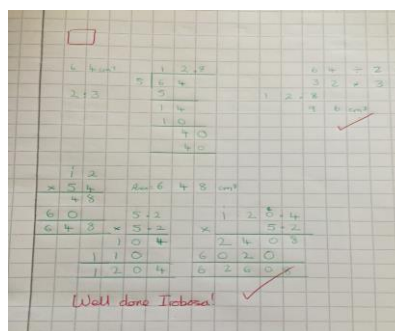 6 4 cm²
2 : 3
1 2 . 8
5 6 4
5
1 4
1 0
4 0
4 0
6 4 ÷ 2
3 2 × 3
1 2 . 8
9 6 cm²
1 2
× 5 4
4 8
6 0
6 4 8
6 4 8 cm²
5 . 2
× 5 . 2
1 0 4
1 1 0
1 2 0 4
5 . 2
×
2 4 0 8
6 0 2 0
Well done